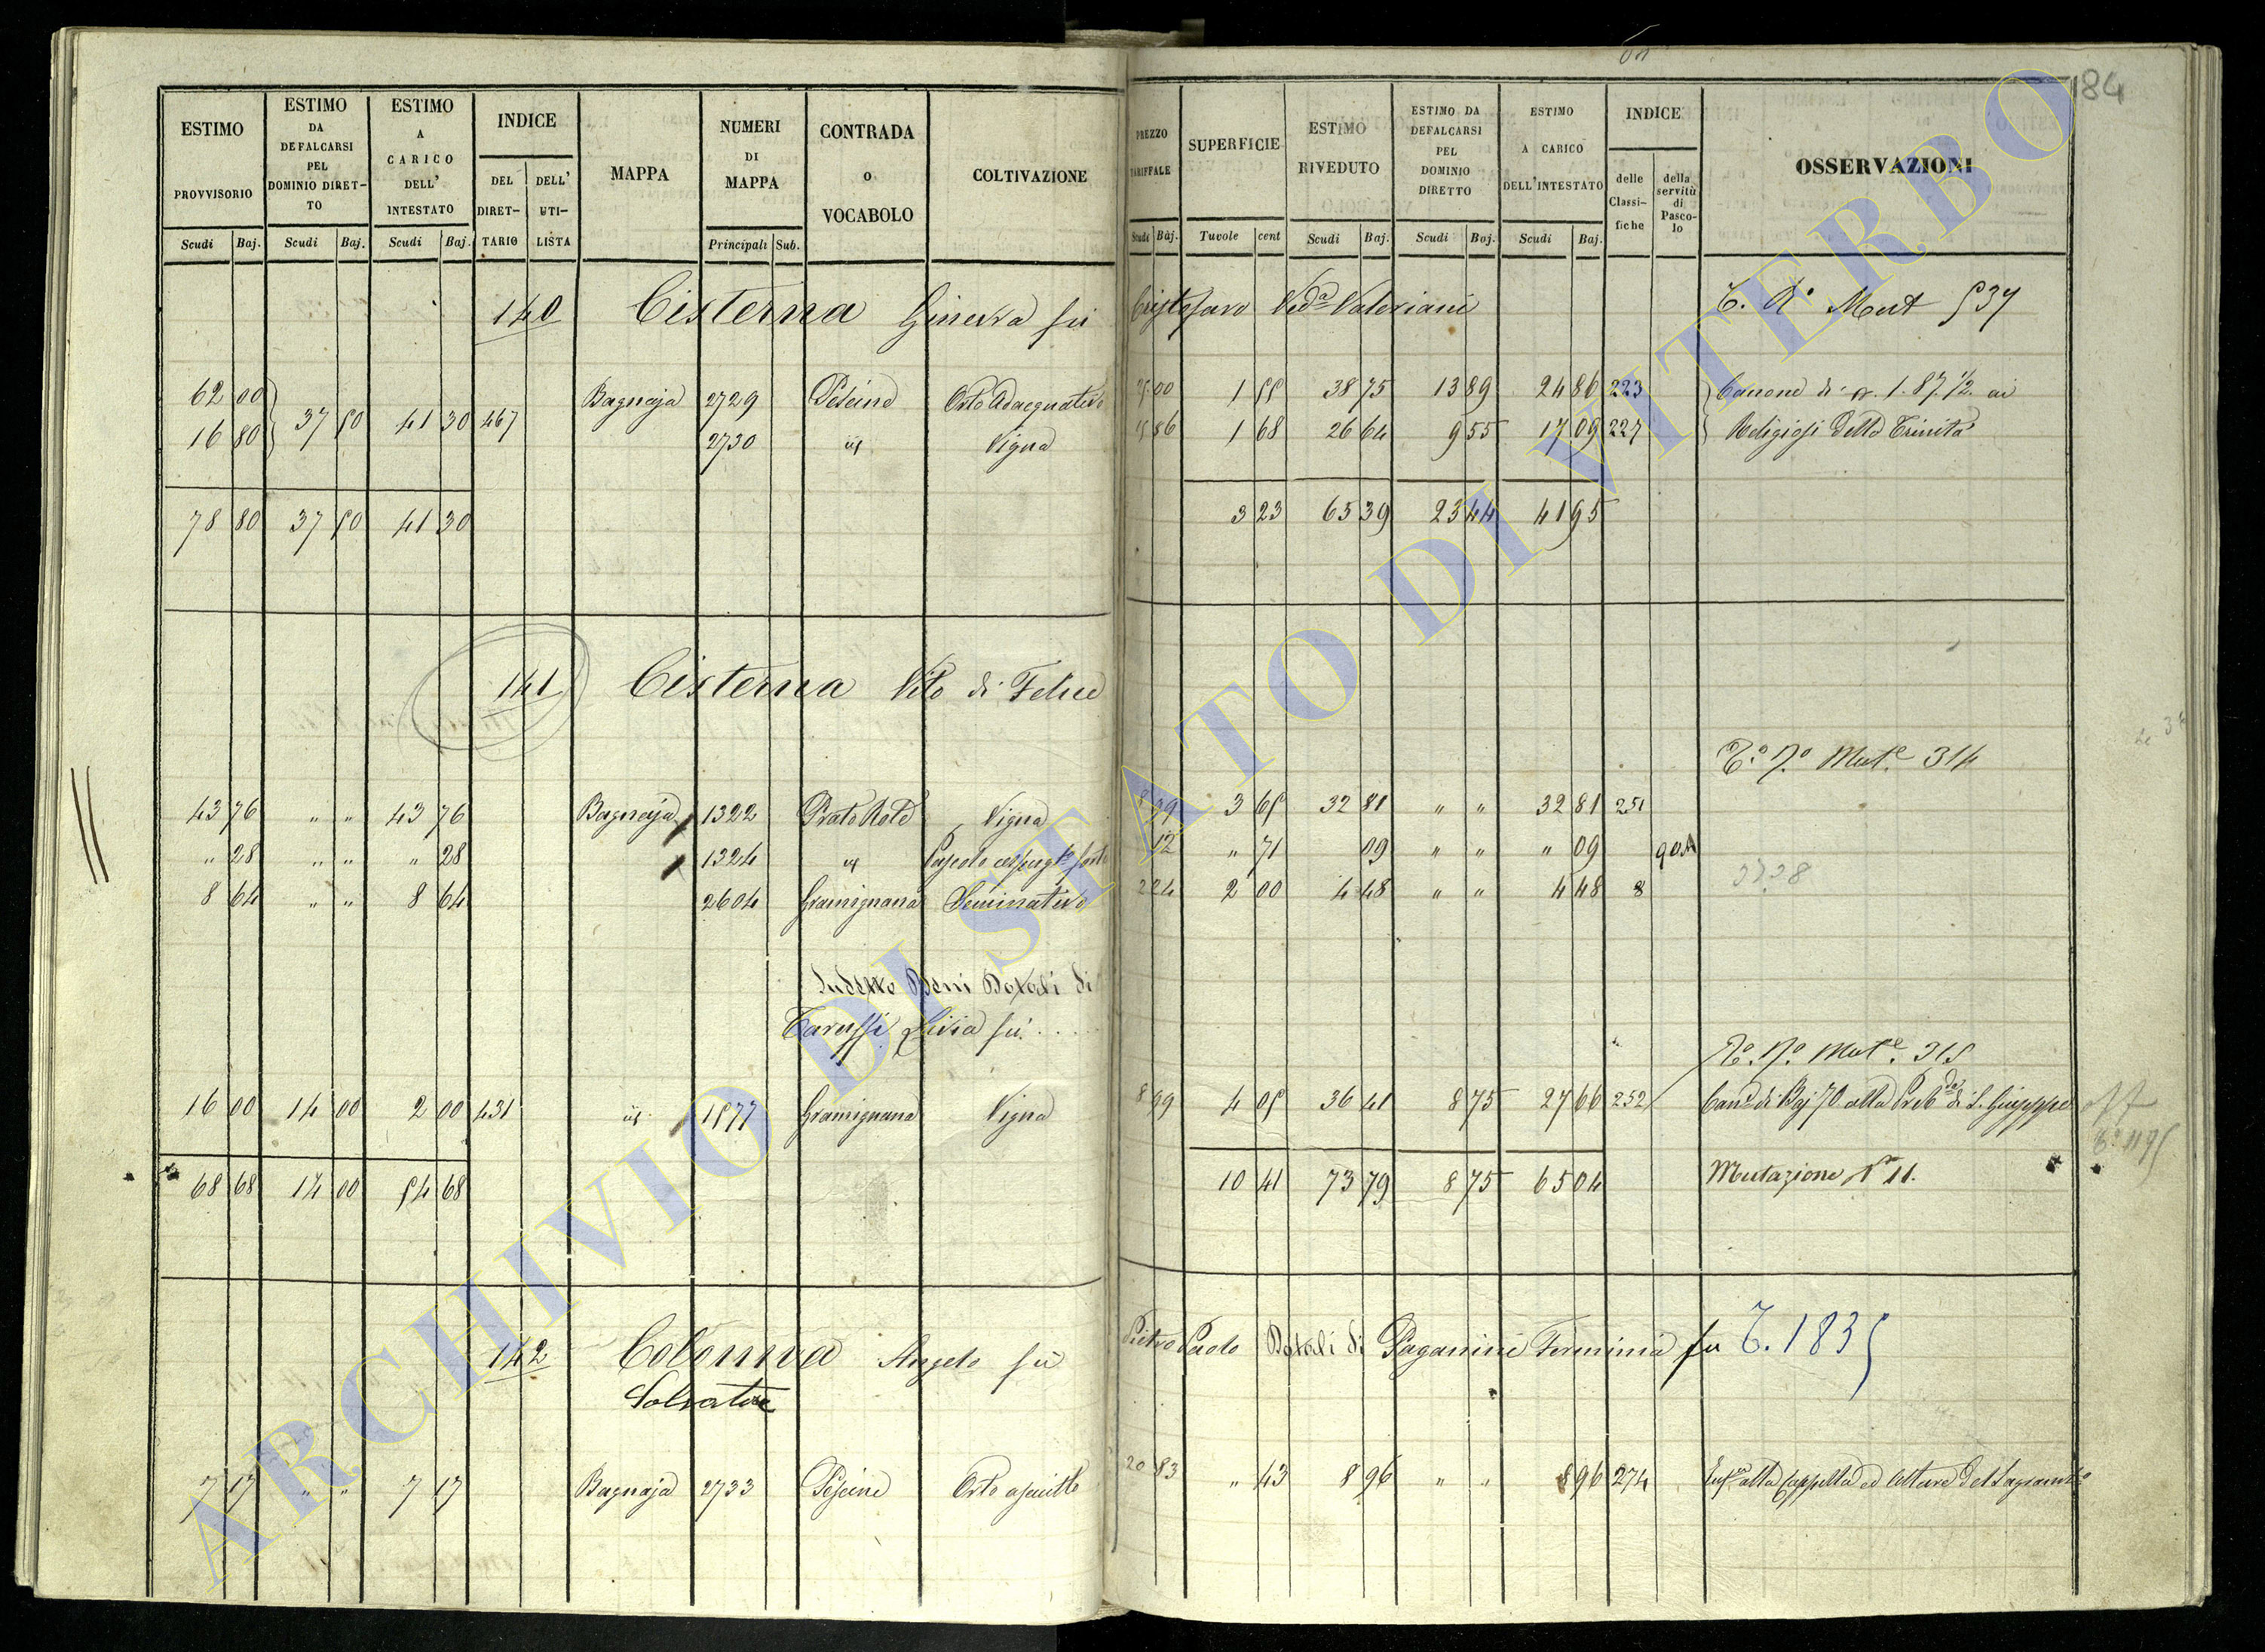 184
ESTIMO PROVVISORIO Scudi Baj.
ESTIMO DA DEFALCARSI PEL DOMINIO DIRET-TO Scudi Baj.
ESTIMO A CARICO DELL' INTESTATO Scudi Baj.
INDICE DEL DIRET-TARIO DELL' UTI-LISTA
MAPPA
NUMERI DI MAPPA Principali Sub.
CONTRADA o VOCABOLO
COLTIVAZIONE
PREZZO TARIFFALE Scudi Baj.
SUPERFICIE Tavole cent
ESTIMO RIVEDUTO Scudi Baj.
ESTIMO DA DEFALCARSI PEL DOMINIO DIRETTO Scudi Baj.
ESTIMO A CARICO DELL'INTESTATO Scudi Baj.
INDICE delle Classi-fiche della servitù di Pasco-lo
OSSERVAZIONI
140 Cisterna Ginevra fù Cristofaro Ved.a Valeriani
Mut 537
62 00 37 50 41 30 467 Bagnaja 2729 Orto Adacquativo 25 00 1 55 38 75 13 89 24 86 223 Canone di 1.87.1/2 ai
16 80 2730 id Vigna 15 86 1 68 26 64 9 55 17 09 227 Religiosi della Trinità
78 80 37 50 41 30 3 23 65 39 23 44 41 95
141 Cisterna Vito di Felice
T.o N.o Mut.e 314
43 76 " " 43 76 Bagnaja 1322 Prato Vigna 8 99 3 65 32 81 " " 32 81 251
" 28 " " " 28 1324 id Pascolo forte 12 " 71 09 " " " 09 90A
8 64 " " 8 64 2604 Gramignana Seminativo 2 24 2 00 4 48 " " 4 48 8
Sudetto Beni Dotali di
Tarussi Livia fù....
T.o N.o Mut.e 315
16 00 14 00 2 00 431 id 1577 Gramignana Vigna 8 99 4 05 36 41 8 75 27 66 252 Can.e di Baj 70 alla Preb.da di S. Giuseppe
68 68 14 00 54 68 10 41 73 79 8 75 65 04 Mutazione N.o 11.
142 Colonna Angelo fù Pietro Paolo Dotali di Paganini Firminia fu T. 1835
Salvatore
7 17 " " 7 17 Bagnaja 2733 Pescine Orto asciutto 20 83 " 43 8 96 " " 8 96 274 Enf.a alla Cappella ed Altare del Sagramto
ARCHIVIO DI STATO DI VITERBO